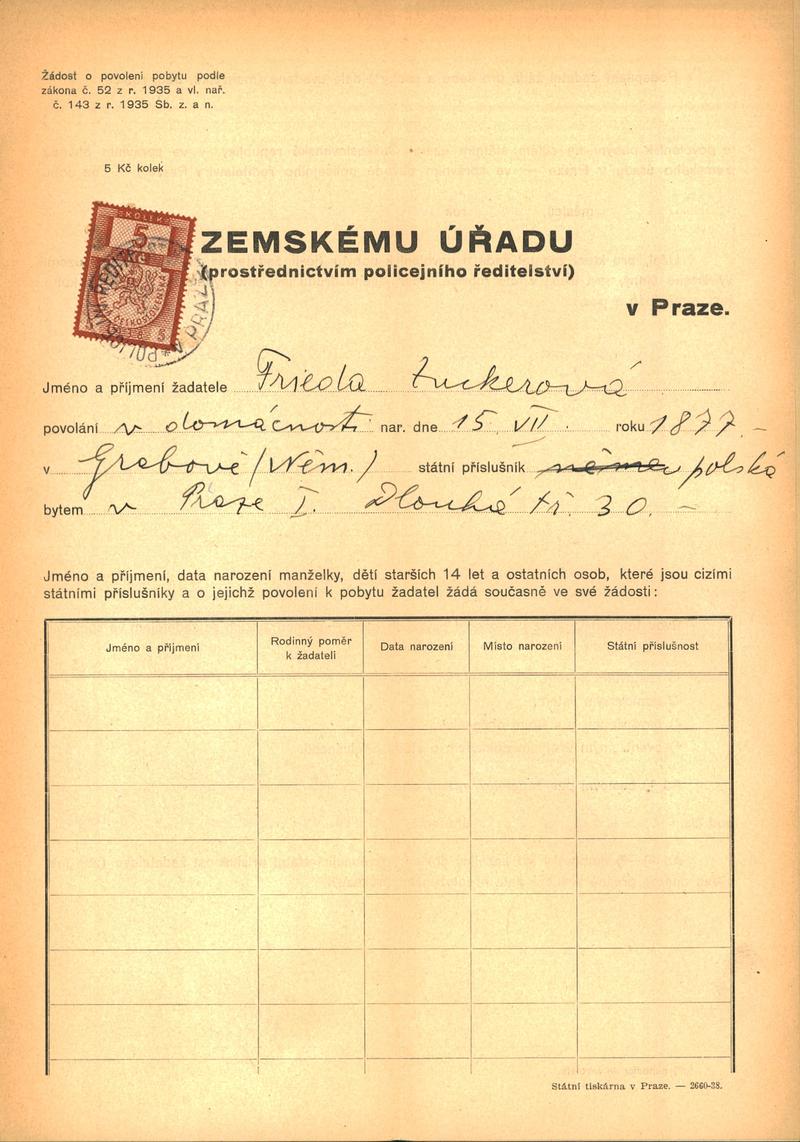 Žádost o povolení pobytu podle
zákona č. 52 z r. 1935 a vl. nař.
č. 143 z r. 1935 Sb. z. a n.
5 Kč kolek
KOLEK
5
KČ
ČESKOSLOVENSKÁ
5
POLICEJNÍ ŘEDITEL V PRAZE
ZEMSKÉMU ÚŘADU
(prostřednictvím policejního ředitelství)
v Praze.
Jméno a příjmení žadatele Frieda Zuckerová
povolání v domácnosti nar. dne 15. VII. roku 1877.–
v Grabově (Něm.) státní příslušník polská
bytem v Praze I. Dlouhá tř. 30.–
Jméno a příjmení, data narození manželky, dětí starších 14 let a ostatních osob, které jsou cizími
státními příslušníky a o jejichž povolení k pobytu žadatel žádá současně ve své žádosti:
Jméno a příjmení
Rodinný poměr
k žadateli
Data narození
Místo narození
Státní příslušnost
Státní tiskárna v Praze. — 2660-38.